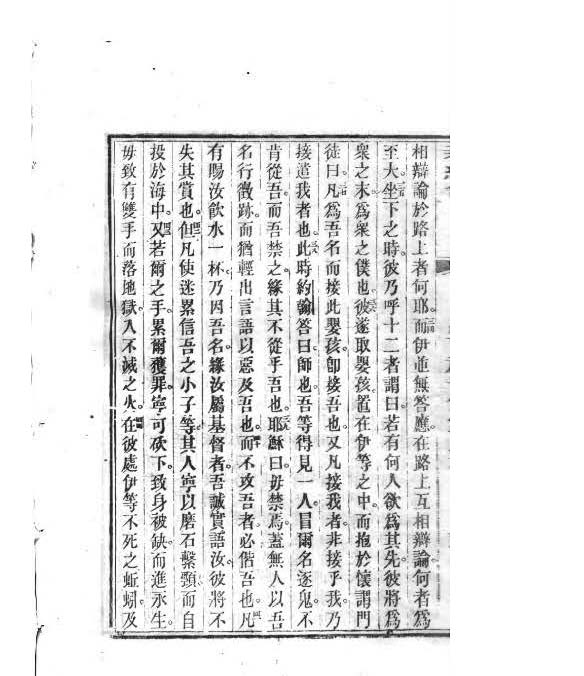 相辯論於路上者何耶而伊並無答應在路上互相辯論何者爲
至大坐下之時彼乃呼十二者謂曰若有何人欲爲其先彼將爲
衆之末爲衆之僕也彼遂取嬰孩置在伊等之中而抱於懷謂門
徒曰凡爲吾名而接此嬰孩卽接吾也又凡接我者非接乎我乃
接遣我者也此時約翰答曰師也吾等得見一人冒爾名逐鬼不
肯從吾而吾禁之緣其不從乎吾也耶穌曰毋禁焉蓋無人以吾
名行徵跡而猶輕出言語以惡及吾也而不攻吾者必偕吾也凡
有賜汝飲水一杯乃因吾名緣汝屬基督者吾誠實語汝彼將不
失其賞也但凡使迷累信吾之小子等其人寧以磨石繫頸而自
投於海中又若爾之手累爾獲罪寧可砍下致身被缺而進永生
毋致有雙手而落地獄入不滅之火在彼處伊等不死之蚯蚓及